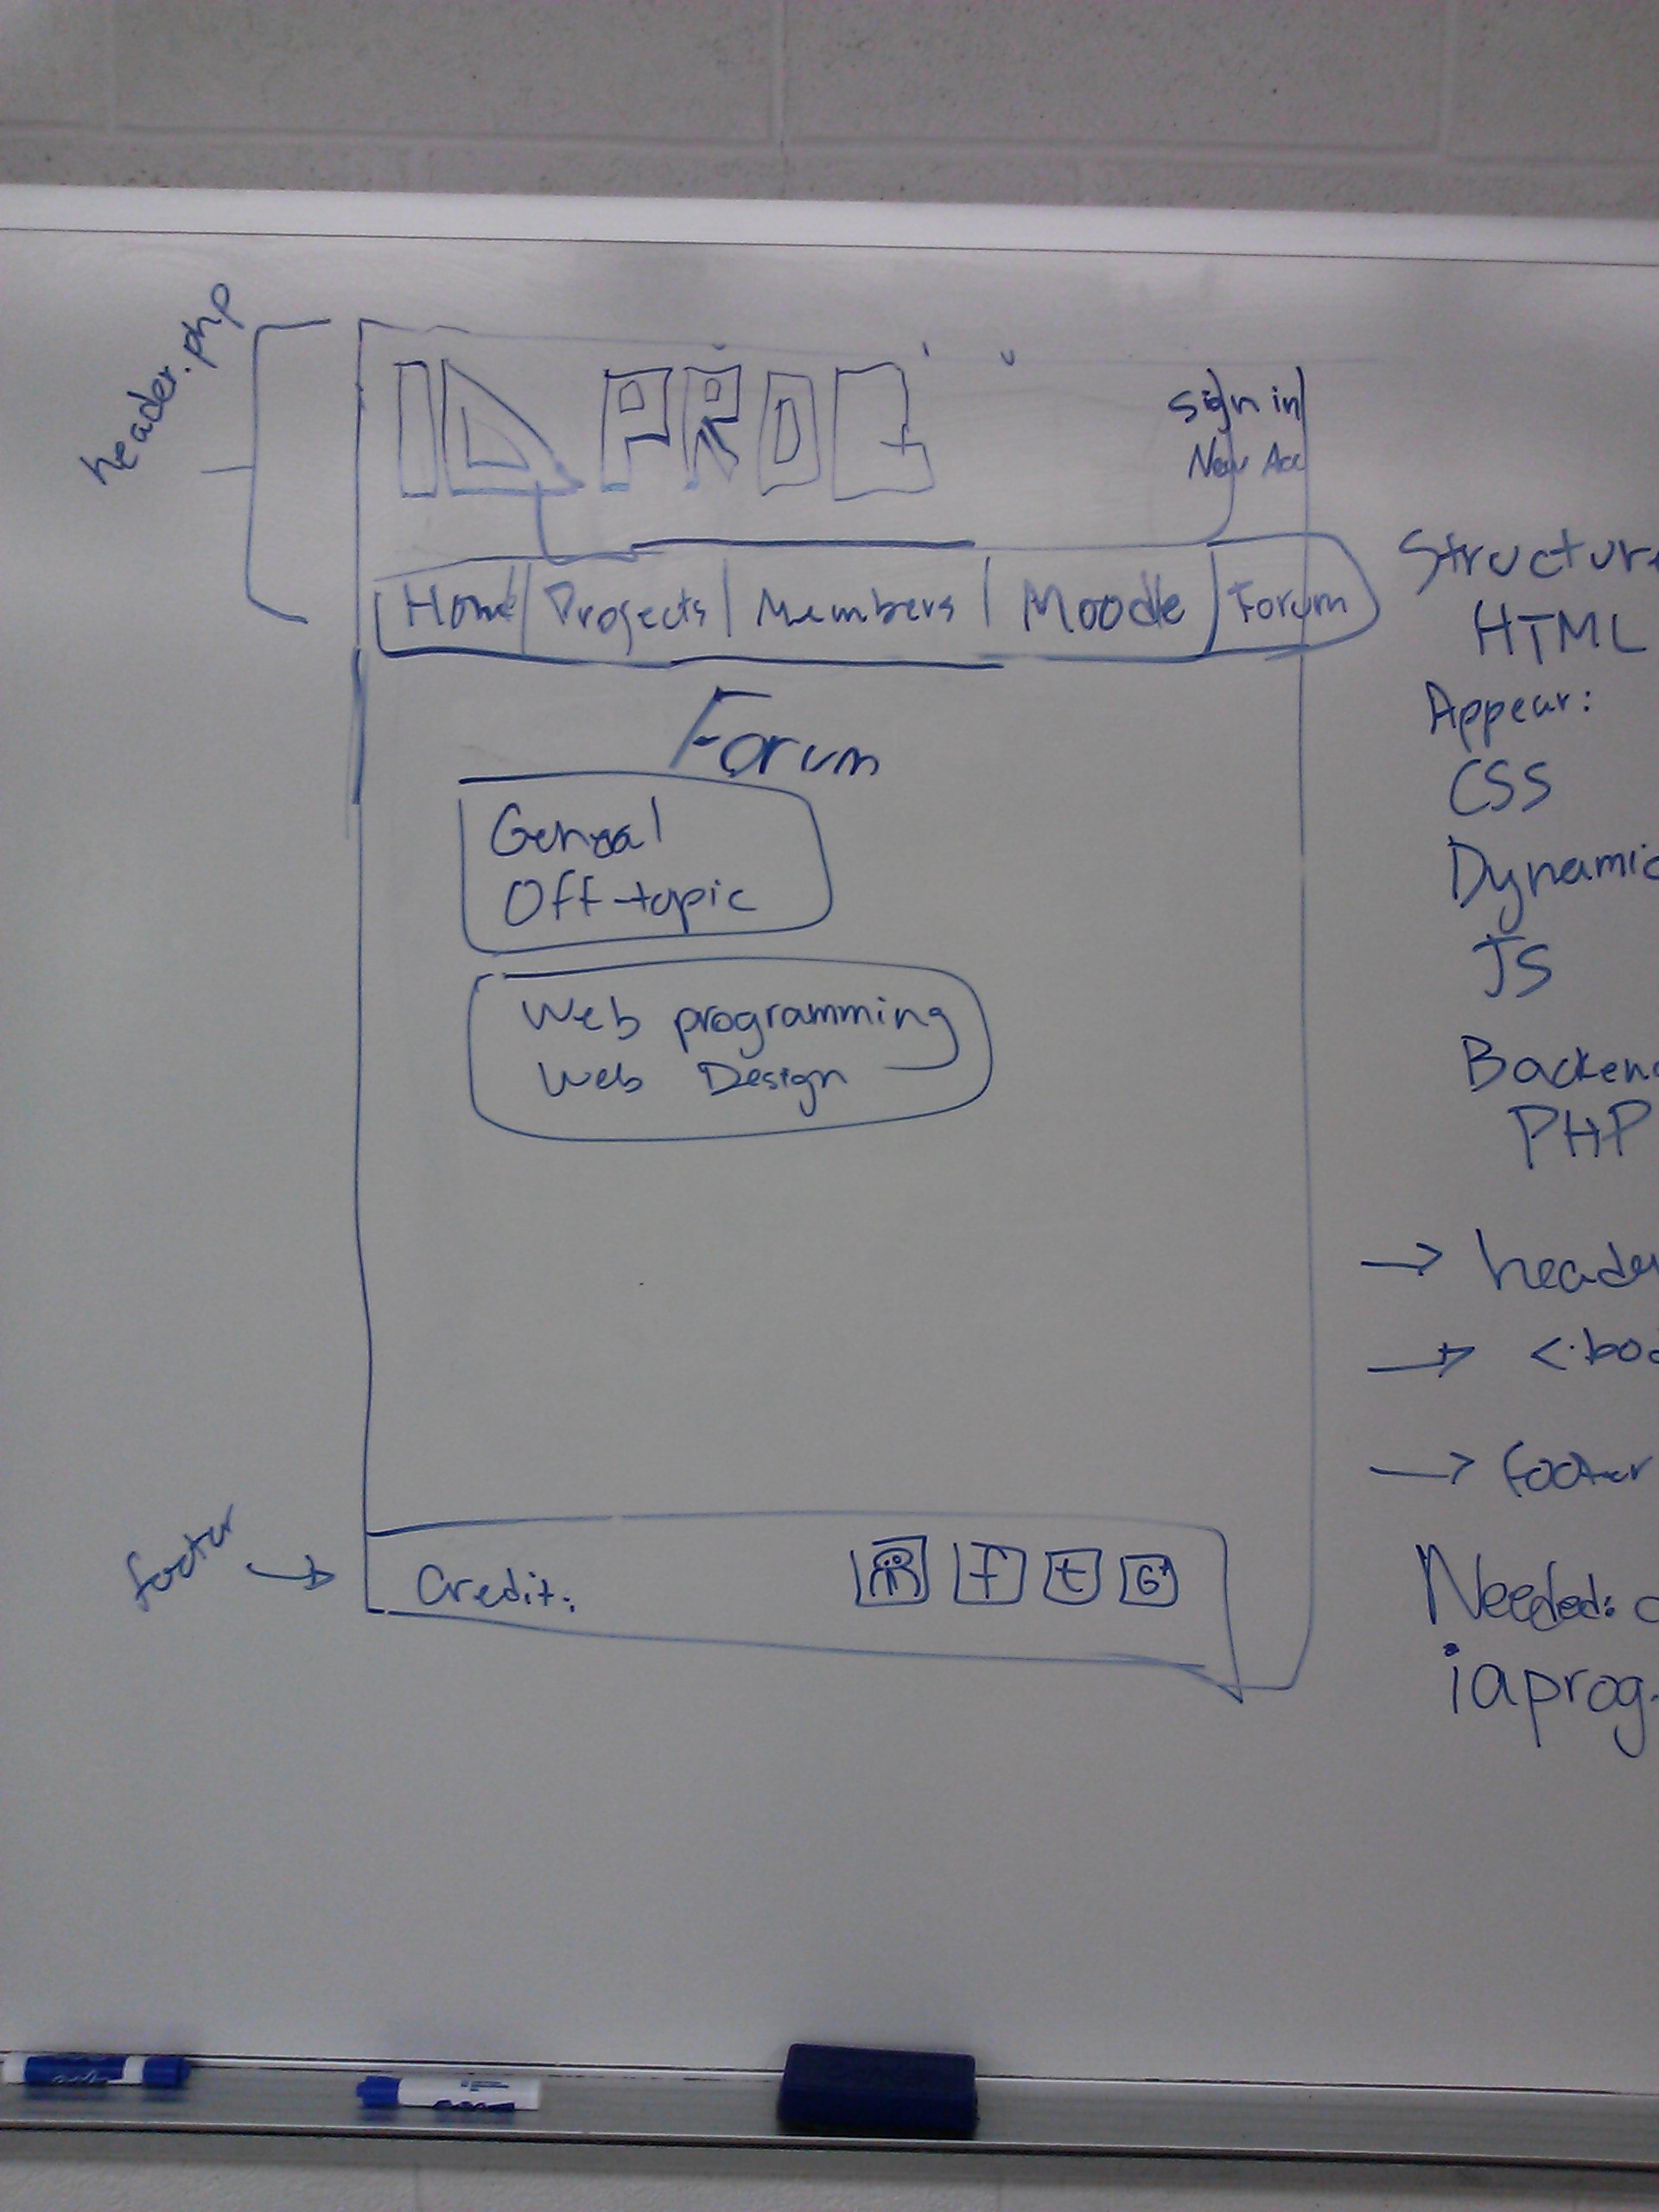 header.php
IA PROG
Sign in
New Acc
Home Projects Members Moodle Forum
Forum
General
Off-topic
Web programming
Web Design
footer
Credit:
f t G+
Structure
HTML
Appear:
CSS
Dynamic
JS
Backend
PHP
→ header
→ <bod
→ footer
Needed:
iaprog.